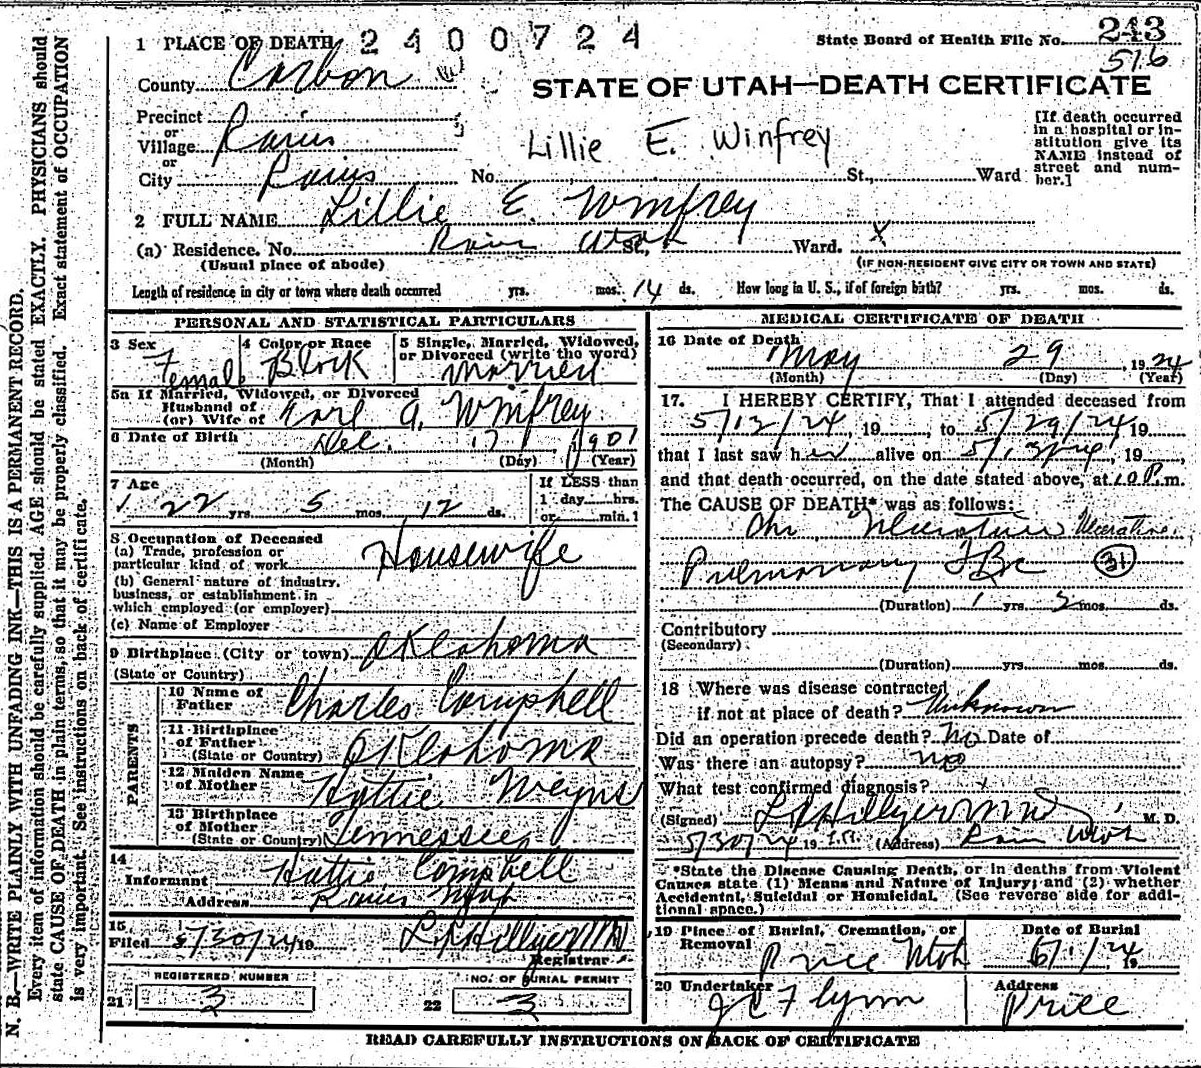 1 PLACE OF DEATH 2400724
State Board of Health File No. 243
516
County Carbon
STATE OF UTAH—DEATH CERTIFICATE
Precinct
or
Village Rains
or
City Rains No. St., Ward
Lillie E. Winfrey
[If death occurred
in a hospital or in-
stitution give its
NAME instead of
street and num-
ber.]
2 FULL NAME Lillie E. Winfrey
(a) Residence. No. Rains Utah St., Ward. X
(Usual place of abode)
(IF NON-RESIDENT GIVE CITY OR TOWN AND STATE)
Length of residence in city or town where death occurred yrs. mos. 14 ds. How long in U. S., if of foreign birth? yrs. mos. ds.
PERSONAL AND STATISTICAL PARTICULARS
3 Sex
Female
4 Color or Race
Black
5 Single, Married, Widowed,
or Divorced (write the word)
Married
5a If Married, Widowed, or Divorced
Husband of
(or) Wife of Earl G. Winfrey
6 Date of Birth Dec. 17 1901
(Month) (Day) (Year)
7 Age
22 yrs. 5 mos. 12 ds.
If LESS than
1 day hrs.
or min.
8 Occupation of Deceased
(a) Trade, profession or
particular kind of work Housewife
(b) General nature of industry,
business, or establishment in
which employed (or employer)
(c) Name of Employer
9 Birthplace (City or town) Oklahoma
(State or Country)
PARENTS
10 Name of
Father Charles Campbell
11 Birthplace
of Father
(State or Country) Oklahoma
12 Maiden Name
of Mother Hattie
13 Birthplace
of Mother
(State or Country) Tennessee
14
Informant Hattie Campbell
Address Rains Utah
15
Filed 5/30/24 19 L H Hillyer MD
Registrar
REGISTERED NUMBER
21 3
NO. OF BURIAL PERMIT
22 3
MEDICAL CERTIFICATE OF DEATH
16 Date of Death
May 29 1924
(Month) (Day) (Year)
17. I HEREBY CERTIFY, That I attended deceased from
5/12/24, 19, to 5/29/24 19
that I last saw her alive on , 19
and that death occurred, on the date stated above, at 10 P.m.
The CAUSE OF DEATH* was as follows:
Chr. Ulcerative Ulcerative
Pulmonary TBc 31
(Duration) 1 yrs. 2 mos. ds.
Contributory
(Secondary)
(Duration) yrs. mos. ds.
18 Where was disease contracted
if not at place of death? Unknown
Did an operation precede death? No Date of
Was there an autopsy? no
What test confirmed diagnosis?
(Signed) L H Hillyer MD M. D.
5/30/24 19 (Address) Rains Utah
*State the Disease Causing Death, or in deaths from Violent
Causes state (1) Means and Nature of Injury; and (2) whether
Accidental, Suicidal or Homicidal. (See reverse side for addi-
tional space.)
19 Place of Burial, Cremation, or
Removal
Price Utah
Date of Burial
6/1/24 19
20 Undertaker
J C Flynn
Address
Price
READ CAREFULLY INSTRUCTIONS ON BACK OF CERTIFICATE
N. B.—WRITE PLAINLY WITH UNFADING INK—THIS IS A PERMANENT RECORD.
Every item of information should be carefully supplied. AGE should be stated EXACTLY. PHYSICIANS should
state CAUSE OF DEATH in plain terms, so that it may be properly classified. Exact statement of OCCUPATION
is very important. See instructions on back of certificate.